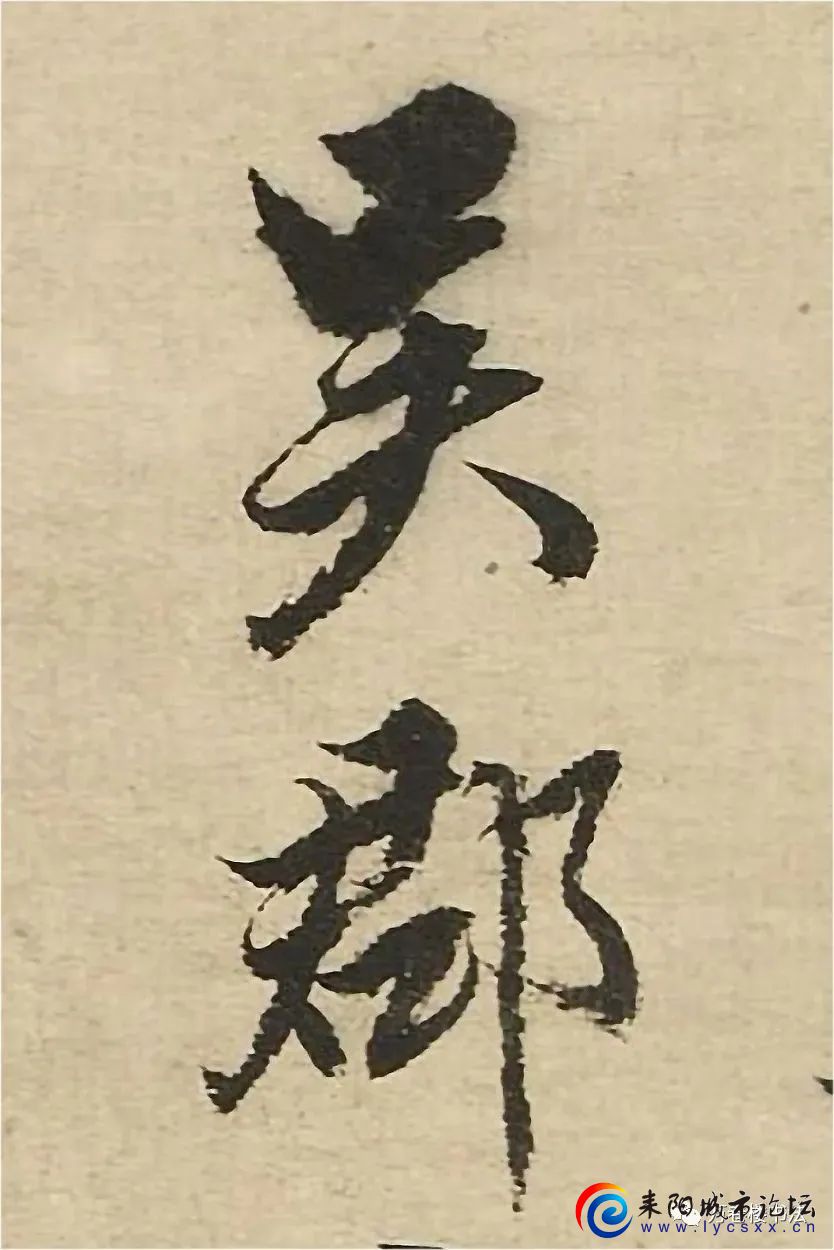 吴郡
耒阳城市论坛
www.lycsxx.cn